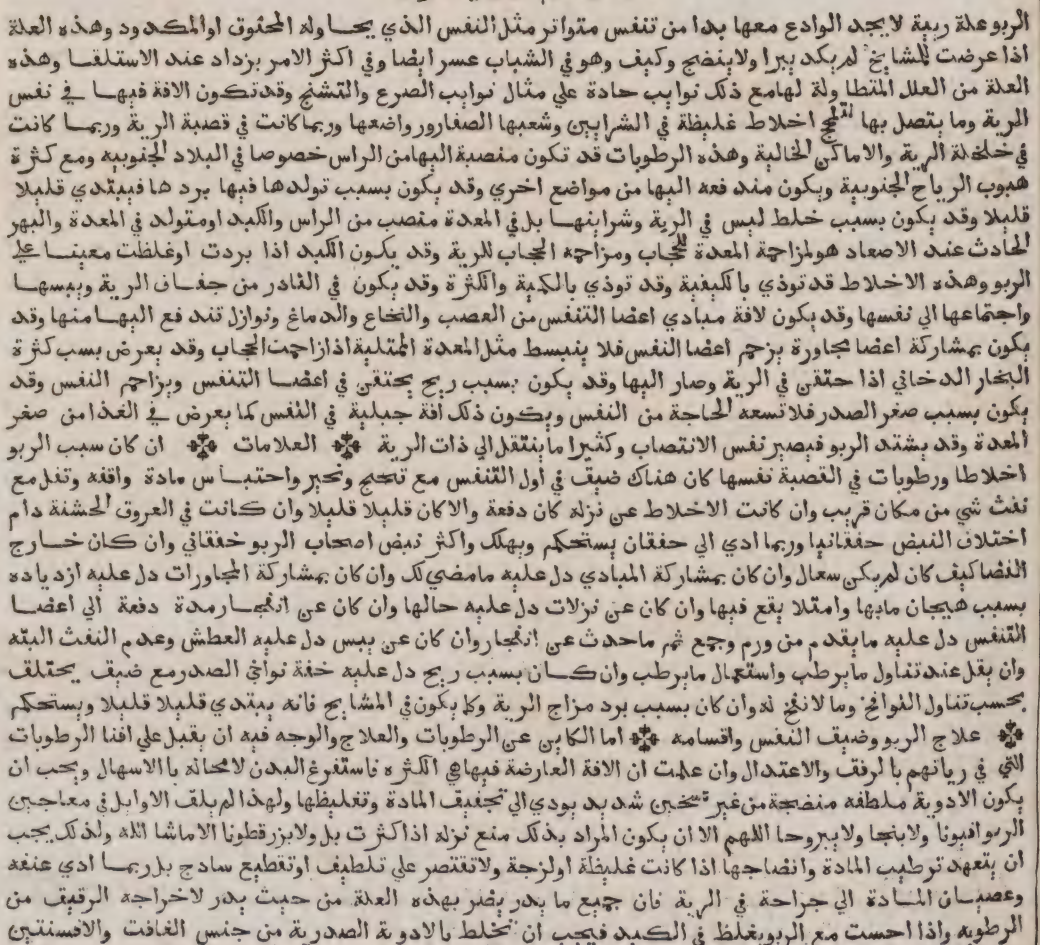 الربو علة ربية لا يجد الوادع معها بدا من تنفس متواتر مثل النفس الذي يحاوله المخنوق او المكدود وهذه العلة
اذا عرضت للمشايخ لم يكد يبرا ولا ينضج وكيف وهو في الشباب عسر ايضا وفي اكثر الامر يزداد عند الاستلقا وهذه
العلة من العلل المتطاولة لها مع ذلك نوايب حادة علي مثال نوايب الصرع والتشنج وقد تكون الافة فيها في نفس
الرية وما يتصل بها لتلحج اخلاط غليظة في الشرايين وشعبها الصغار ورواضعها وربما كانت في قصبة الرية وربما كانت
في خلخلة الرية والاماكن الخالية وهذه الرطوبات قد تكون منصبة اليها من الراس خصوصا في البلاد الجنوبية ومع كثرة
هبوب الرياح الجنوبية ويكون مندفعه اليها من مواضع اخري وقد يكون بسبب تولدها فيها بردها فيبتدي قليلا
قليلا وقد يكون بسبب خلط ليس في الرية وشراينها بل في المعدة منصب من الراس والكبد او متولد في المعدة والبهر
الحادث عند الاصعاد هو لمزاحمة المعدة للحجاب ومزاحمه الحجاب للرية وقد يكون الكبد اذا بردت او غلظت معينا علي
الربو وهذه الاخلاط قد توذي بالكيفية وقد توذي بالكمية والكثرة وقد يكون في النادر من جفاف الرية ويبسها
واجتماعها الي نفسها وقد يكون لافة مبادي اعضا التنفس من العصب والنخاع والدماغ ونوازل تندفع اليها منها وقد
يكون بمشاركة اعضا مجاورة يزحم اعضا النفس فلا ينبسط مثل المعدة الممتلية اذا زاحمت الحجاب وقد يعرض بسب كثرة
البخار الدخاني اذا حتقن في الرية وصار اليها وقد يكون بسبب ريح يحتقن في اعضا التنفس ويزاحم النفس وقد
يكون بسبب صغر الصدر فلا تسعه الحاجة من النفس ويكون ذلك افة جبلية في النفس كما يعرض في الغذا من صغر
المعدة وقد يشتد الربو فيصير نفس الانتصاب وكثيرا ما ينتقل الي ذات الرية العلامات ان كان سبب الربو
اخلاطا ورطوبات في القصبة نفسها كان هناك ضيق في اول التنفس مع تنحنح ونحير واحتباس مادة واقفه وثقل مع
نفث شي من مكان قريب وان كانت الاخلاط عن نزله كان دفعة والا كان قليلا قليلا وان كانت في العروق الخشنة دام
اختلاف النبض خفقانيا وربما ادي الي خفقان يستحكم ويهلك واكثر نبض اصحاب الربو خفقاني وان كان خارج
الفضا كيف كان لم يكن سعال وان كان بمشاركة المبادي دل عليه ما مضي لك وان كان بمشاركة المجاورات دل عليه ازدياده
بسبب هيجان مابها وامتلا يقع فيها وان كان عن نزلات دل عليه حالها وان كان عن انفجار مدة دفعة الي اعضا
التنفس دل عليه ما يقدم من ورم وجمع ثم ما حدث عن انفجار وان كان عن يبس دل عليه العطش وعدم النفث البته
وان يقل عند تناول ما يرطب واستعمال ما يرطب وان كان بسبب ريح دل عليه خفة نواحي الصدر مع ضيق يختلف
بحسب تناول النوافخ وما لا نفخ له وان كان بسبب برد مزاج الرية وكما يكون في المشايخ فانه يبتدي قليلا قليلا ويستحكم
علاج الربو وضيق النفس واقسامه اما الكاين عن الرطوبات والعلاج والوجه فيه ان يقبل علي افنا الرطوبات
التي في رياتهم بالرفق والاعتدال وان علمت ان الافة العارضة فيها هي الكثره فاستفرغ البدن لا محاله بالاسهال ويجب ان
يكون الادوية ملطفه منضجة من غير تسخين شديد يودي الي تجفيف المادة وتغليظها ولهذا لم يلق الاوايل في معاجين
الربو افيونا ولا بنجا ولا يبروحا اللهم الا ان يكون المراد بذلك منع نزله اذا كثرت بل ولا بزر قطونا الا ماشا الله ولذلك يجب
ان يتعهد ترطيب المادة وانضاجها اذا كانت غليظة او لزجة ولا تقتصر علي تلطيف او تقطيع سادج بل ربما ادي عنفه
وعصيان المادة الي جراحة في الرية فان جميع ما يدر يضر بهذه العلة من حيث يدر لاخراجه الرقيف من
الرطوبه واذا احست مع الربو بغلظ في الكبد فيجب ان تخلط بالادوية الصدرية من جنس الغافت والافسنتين